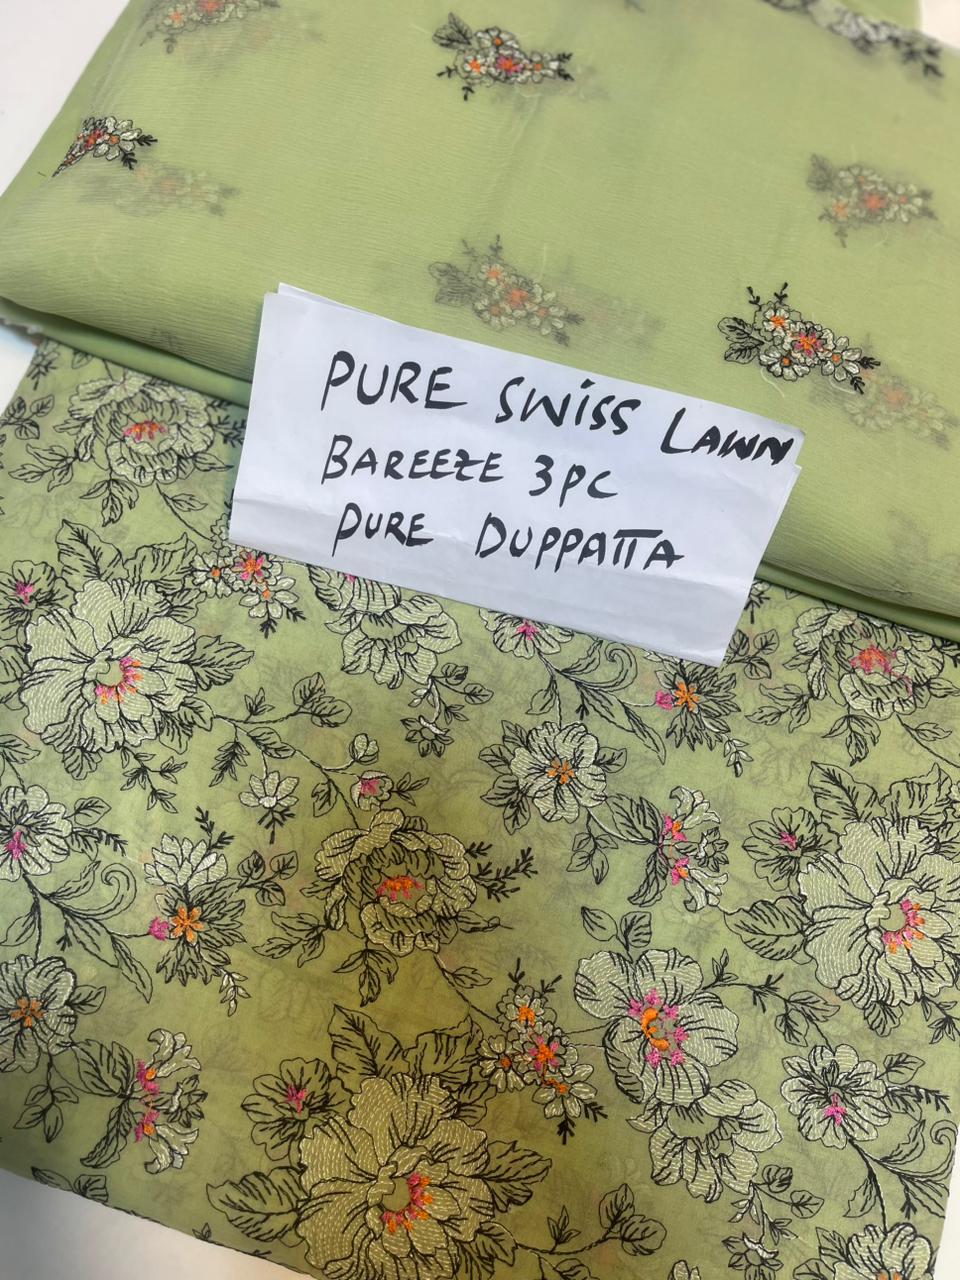 PURE SWiSS LAWN
BAREEZE 3PC
PURE DUPPATTA